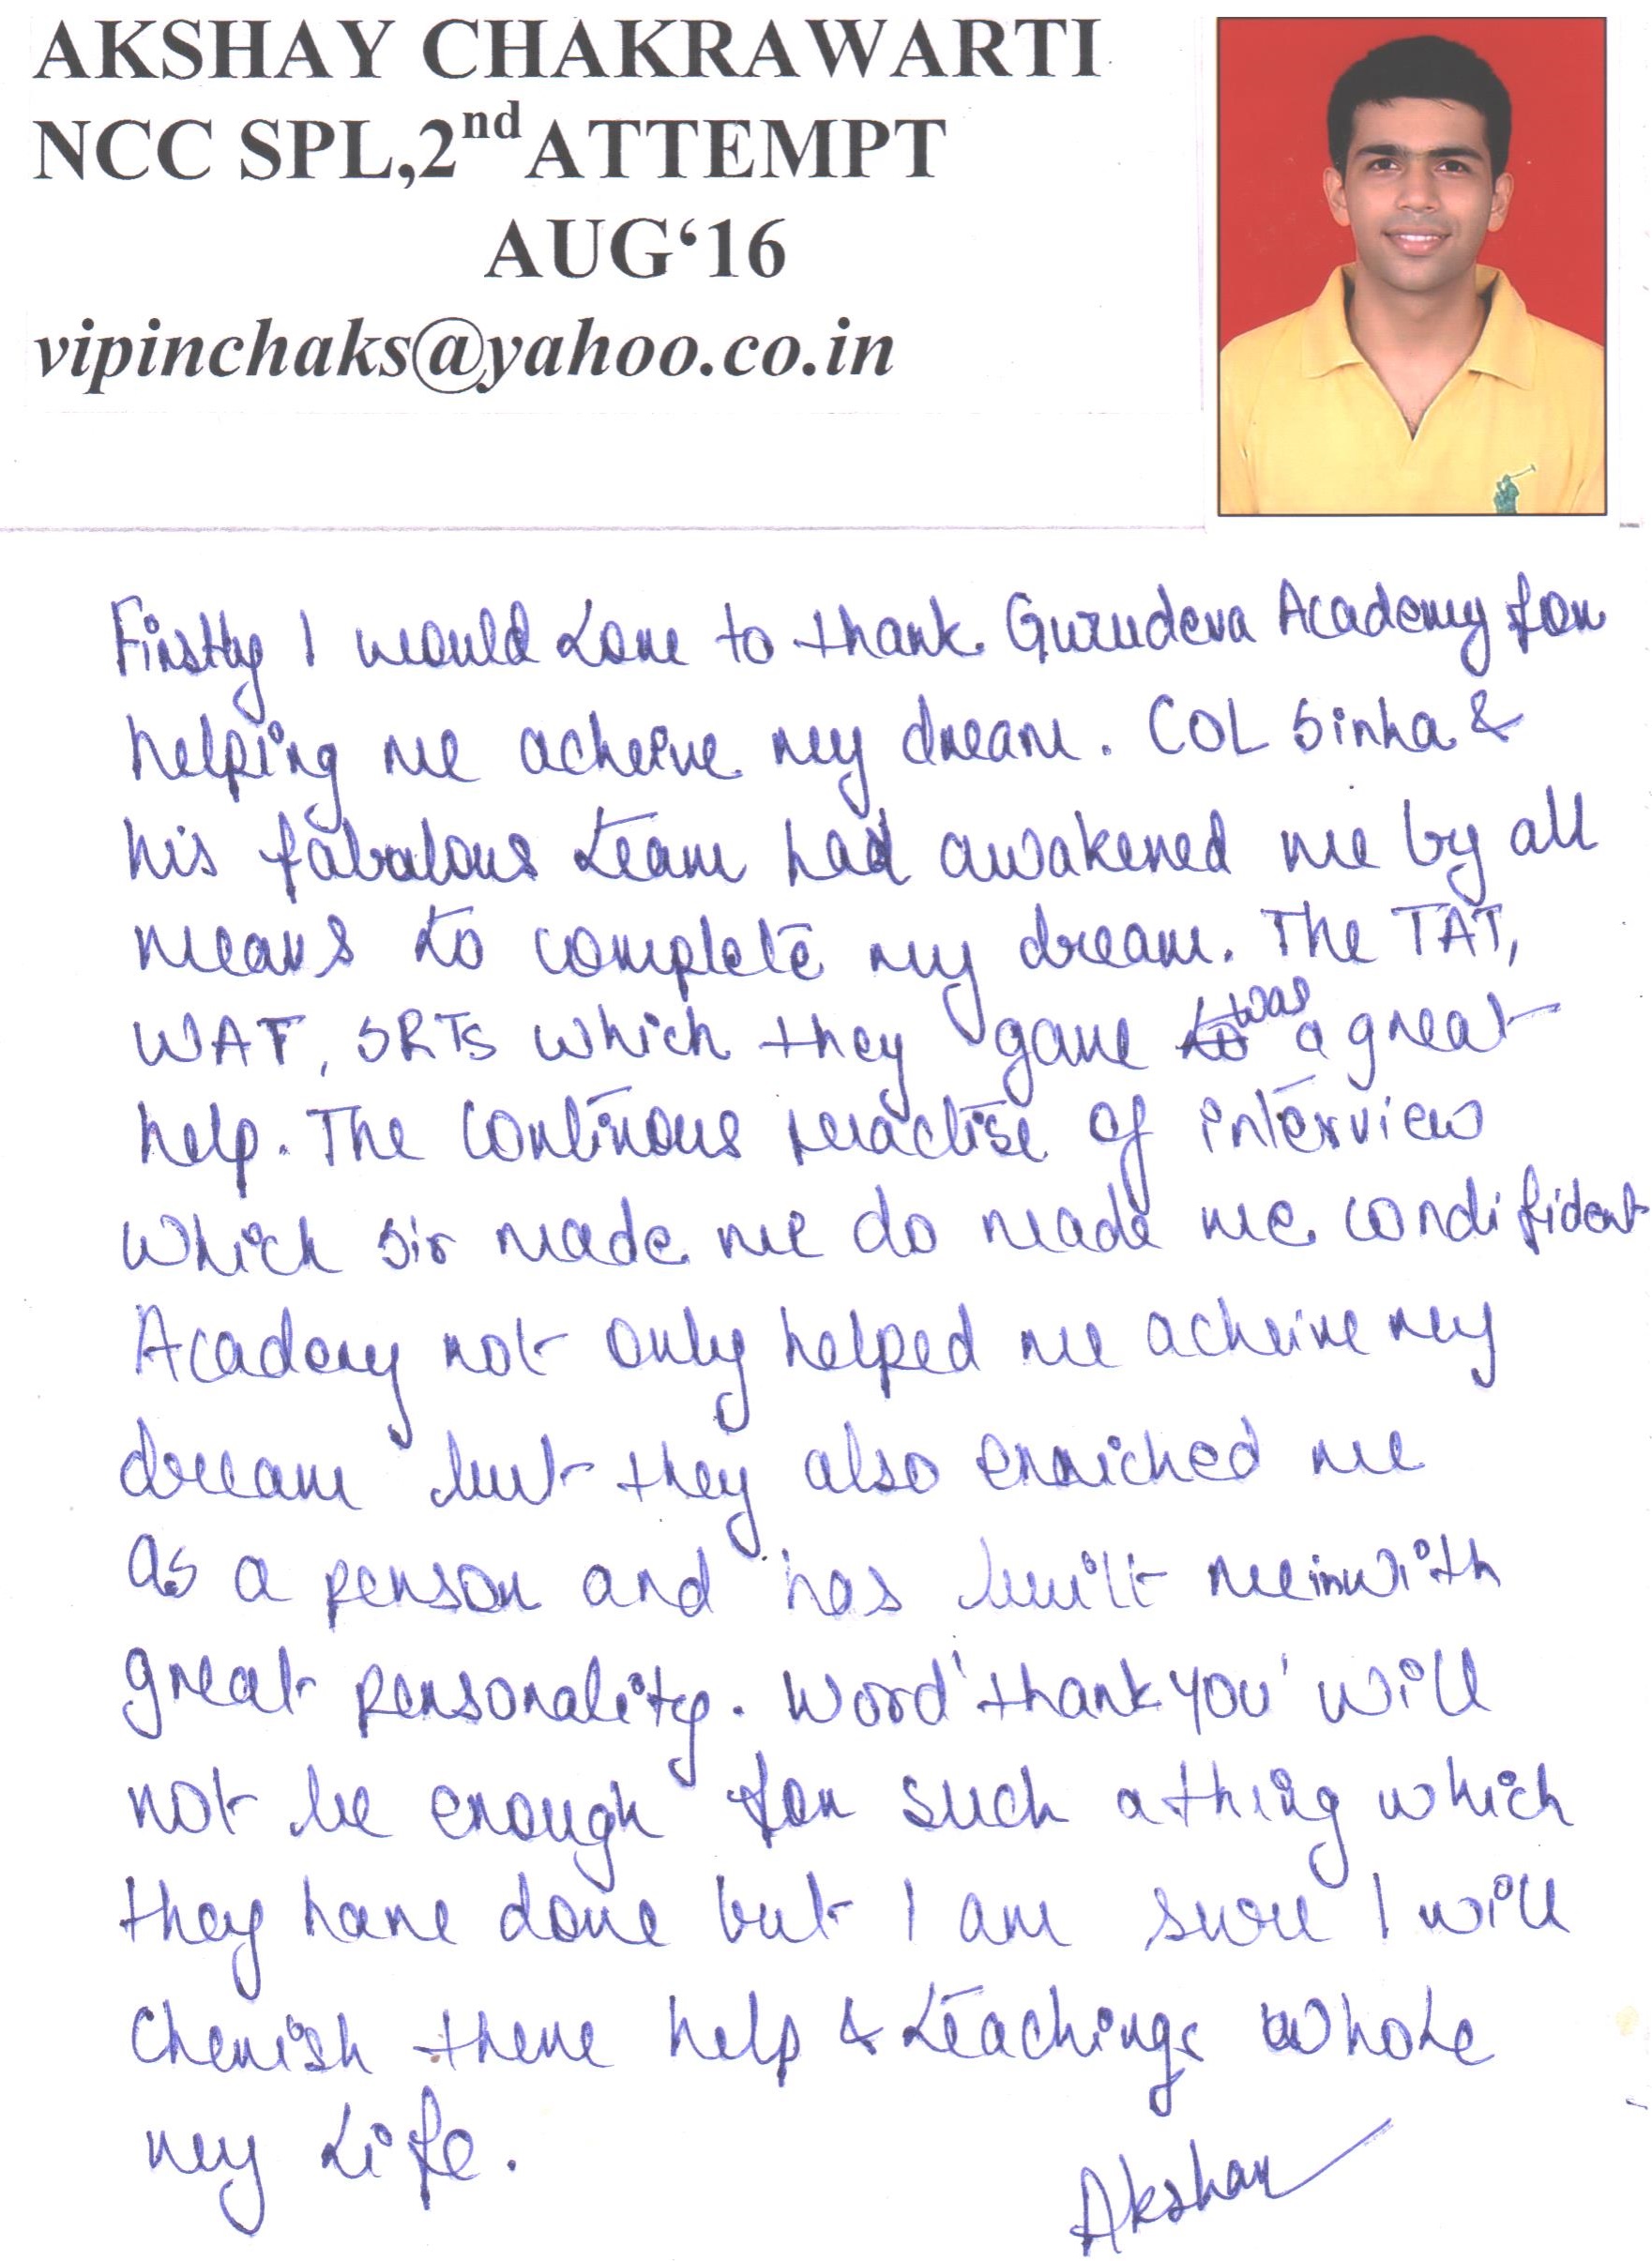 AKSHAY CHAKRAWARTI
NCC SPL,2nd ATTEMPT
AUG‘16
vipinchaks@yahoo.co.in
Firstly I would Love to thank Gurudeva Academy for
helping me acheive my dream. COL Sinha &
his fabulous team had awakened me by all
means to complete my dream. The TAT,
WAT, SRTs which they gave was a great
help. The continous practise of interview
which sir made me do made me condifident
Academy not only helped me acheive my
dream but they also enriched me
as a person and has built me in with
great personality. Word 'thank you' will
not be enough for such a thing which
they have done but I am sure I will
Cherish there help & teachings whole
my Life.
Akshay